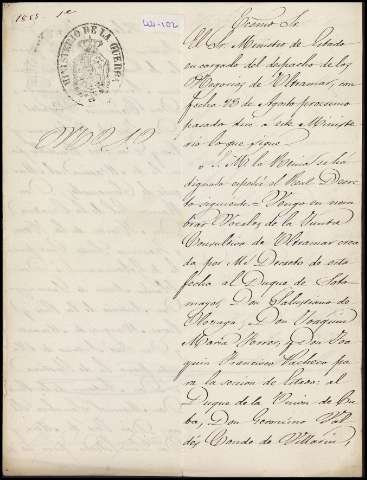 1853
1ª
MINISTERIO DE LA GUERRA
Excmo Sr
El Sr Ministro de Estado
encargado del despacho de los
Negocios de Ultramar, con
fecha 23 de Agosto procsimo
pasado dice a este Ministe
rio lo que sigue
S. M. la Reina se ha
dignado espedir el Real Decre
to siguiente = Vengo en nom
brar Vocales de la Junta
Consultiva de Ultramar crea
da por Mi Decreto de esta
fecha al Duque de Soto
mayor, Don Salustiano de
Olozaga, Don Joaquin
Maria Ferrer, y Don Joa
quin Francisco Pacheco pa
ra la seccion de Estado: al
Duque de la Union de Cu
ba, Don Geronimo Val
dés, Conde de Villarin,